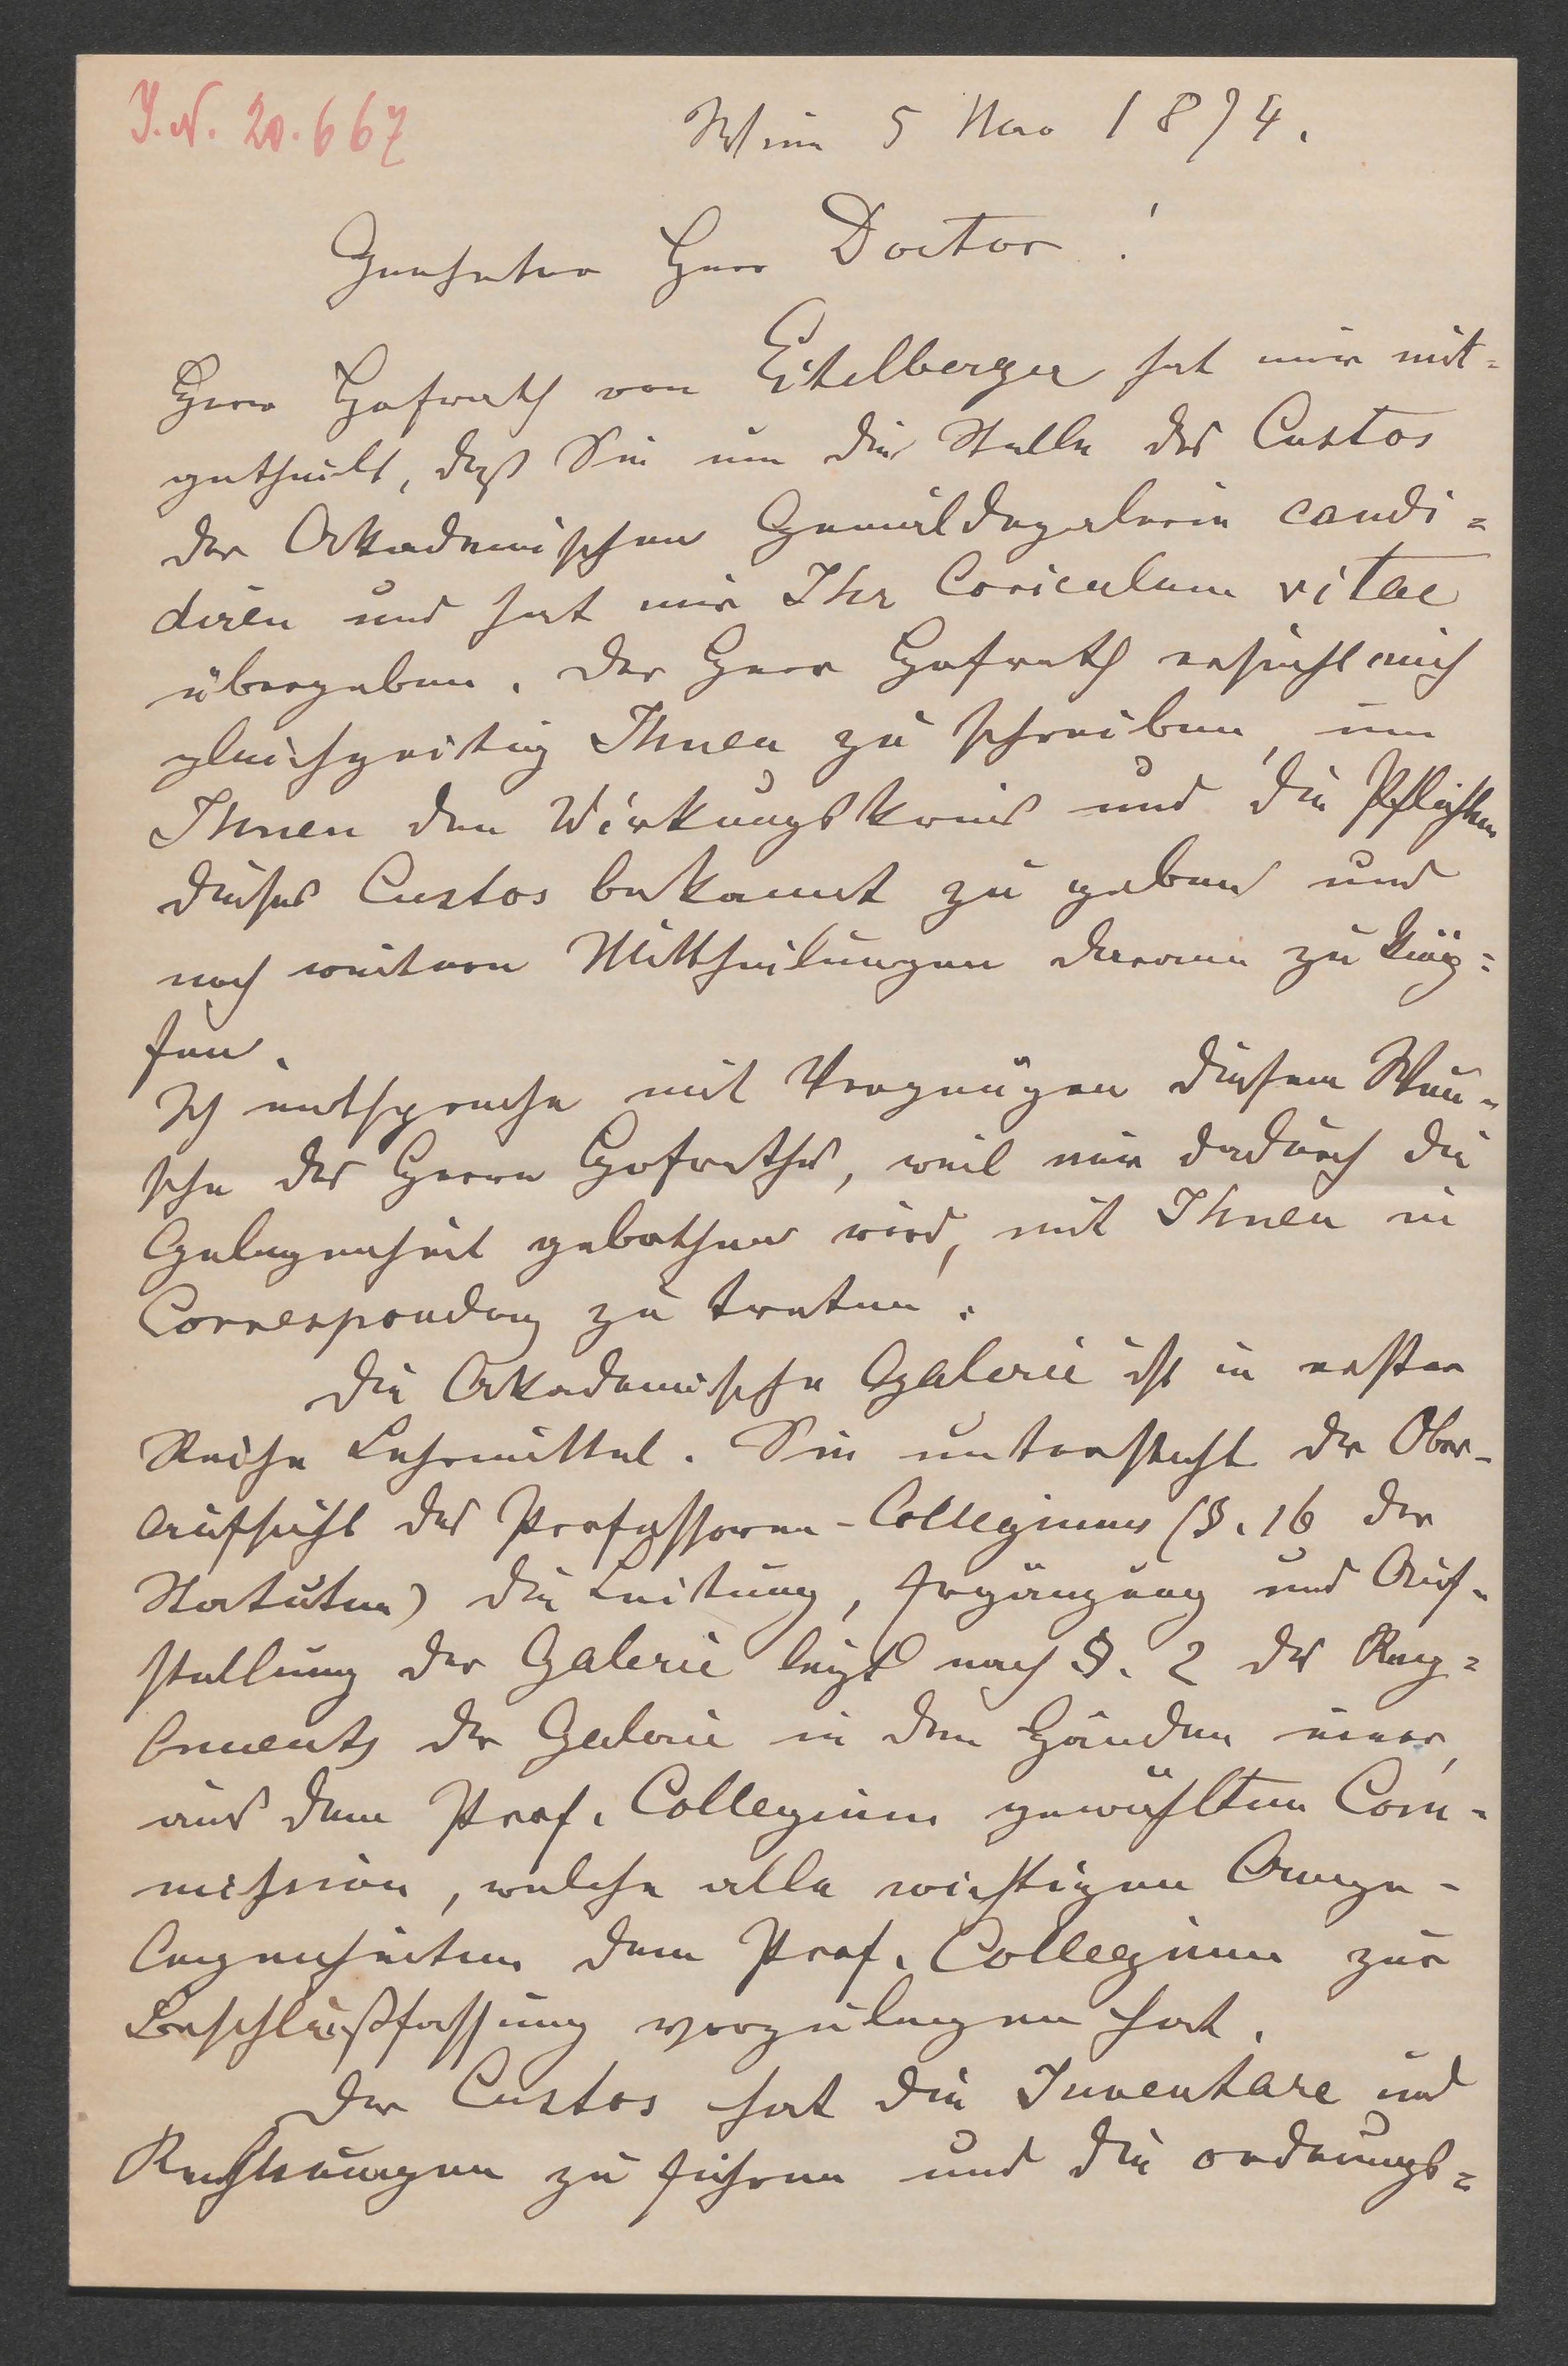 J.N. 20.667
Wien 5 Nov 1874.
Geehrter Herr Doctor!
Herr Hofrath von Eitelberger hat mir mit=
getheilt, daß Sie um die Stelle des Custos
der Akademischen Gemäldegalerie candi=
diren und hat mir Ihr Coriculum vitae
übergeben. Der Herr Hofrath ersucht mich
gleichzeitig Ihnen zu schreiben, um
Ihnen den Wirkungskreis und die Pflichten
dieses Custos bekannt zu geben und
noch weitere Mittheilungen daran zu knüp=
fen.
Ich entspreche mit Vergnügen diesem Wun=
sche des Herrn Hofrathes, weil mir dadurch die
Gelegenheit gebothen wird, mit Ihnen in
Correspondenz zu treten.
Die Akademische Galerie ist in erster
Reihe Lehrmittel. Sie untersteht der Ober=
aufsicht des Professoren-Collegiums (§. 16 der
Statuten) die Leitung, Ergänzung und Auf=
stellung der Galerie liegt nach §. 2 des Reg=
lements der Galerie in den Händen einer,
aus dem Prof. Collegium gewählten Com=
mission, welche alle wichtigen Ange=
legenheiten dem Prof. Collegium zur
Beschlußfassung vorzulegen hat.
Der Custos hat die Inventare und
Rechnungen zu führen und die ordnungs=